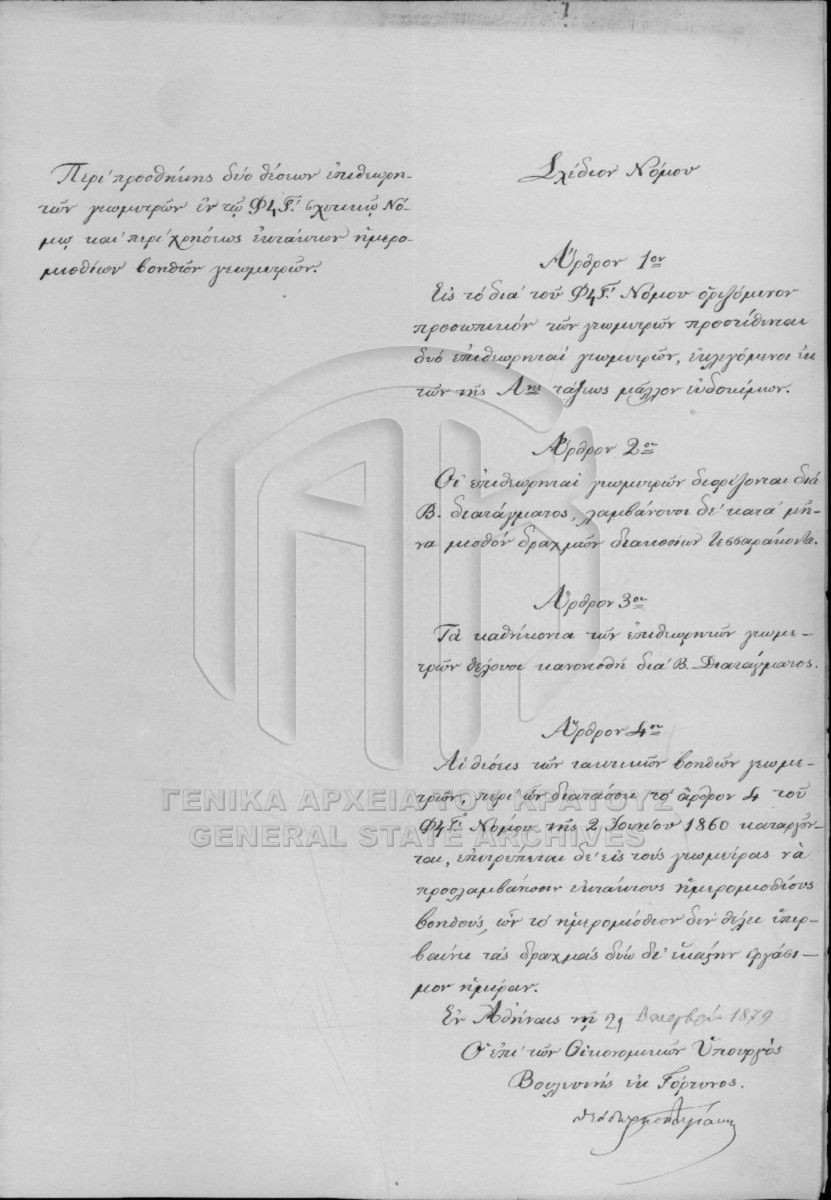 Περὶ προσθήκης δύο θέσεων ἐπιθεωρη-
τῶν γεωμετρῶν ἐν τῷ ΦϞΓ΄. σχετικῷ Νό-
μῳ καὶ περὶ χρήσεως ἐκτάκτων ἡμερο-
μισθίων βοηθῶν γεωμετρῶν.
Σχέδιον Νόμου
Ἄρθρον 1ον
Εἰς τὸ διὰ τοῦ ΦϞΓ΄ Νόμου ὁριζόμενον
προσωπικὸν τῶν γεωμετρῶν προστίθενται
δυὸ ἐπιθεωρηταὶ γεωμετρῶν, ἐκλεγόμενοι ἐκ
τῶν τῆς Αης τάξεως μᾶλλον εὐδοκίμων.
Ἄρθρον 2ον
Οἱ ἐπιθεωρηταὶ γεωμετρῶν διορίζονται διὰ
Β. διατάγματος, λαμβάνουσι δὲ κατὰ μῆ-
να μισθὸν δραχμῶν διακοσίων τεσσαράκοντα.
Ἄρθρον 3ον
Τὰ καθήκοντα τῶν ἐπιθεωρητῶν γεωμε-
τρῶν θέλουσι κανονισθῆ διὰ Β. Διατάγματος.
Ἄρθρον 4ον
Αἱ θέσεις τῶν τακτικῶν βοηθῶν γεωμε-
τρῶν, περὶ ὧν διατάσσει τὸ ἄρθρον 4 τοῦ
ΦϞΓ΄ Νόμου τῆς 2 Ἰουνίου 1860 καταργοῦν-
ται, ἐπιτρέπεται δὲ εἰς τοὺς γεωμέτρας νὰ
προσλαμβάνωσιν ἐκτάκτους ἡμερομισθίους
βοηθούς, ὧν τὸ ἡμερομίσθιον δὲν θέλει ὑπερ-
βαίνει τὰς δραχμὰς δύω δι' ἑκάστην ἐργάσι-
μον ἡμέραν.
Ἐν Ἀθήναις τῇ 21 1879
Ὁ ἐπὶ τῶν Οἰκονομικῶν Ὑπουργὸς
Βουλευτὴς ἐκ Γόρτυνος.
ΓΕΝΙΚΑ ΑΡΧΕΙΑ ΤΟΥ ΚΡΑΤΟΥΣ
GENERAL STATE ARCHIVES